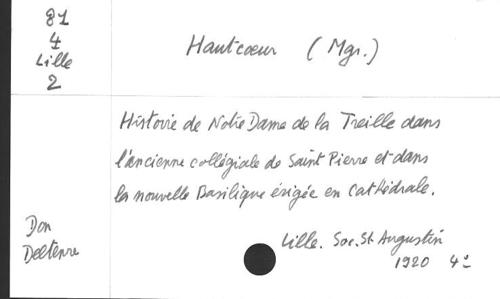 81
4
Lille
2
Hautcoeur (Mgr.)
Histoire de Notre Dame de la Treille dans
l'ancienne collégiale de Saint Pierre et dans
la nouvelle Basilique érigée en Cathédrale.
Lille. Soc. St Augustin
1920 4°
Don
Deltenre